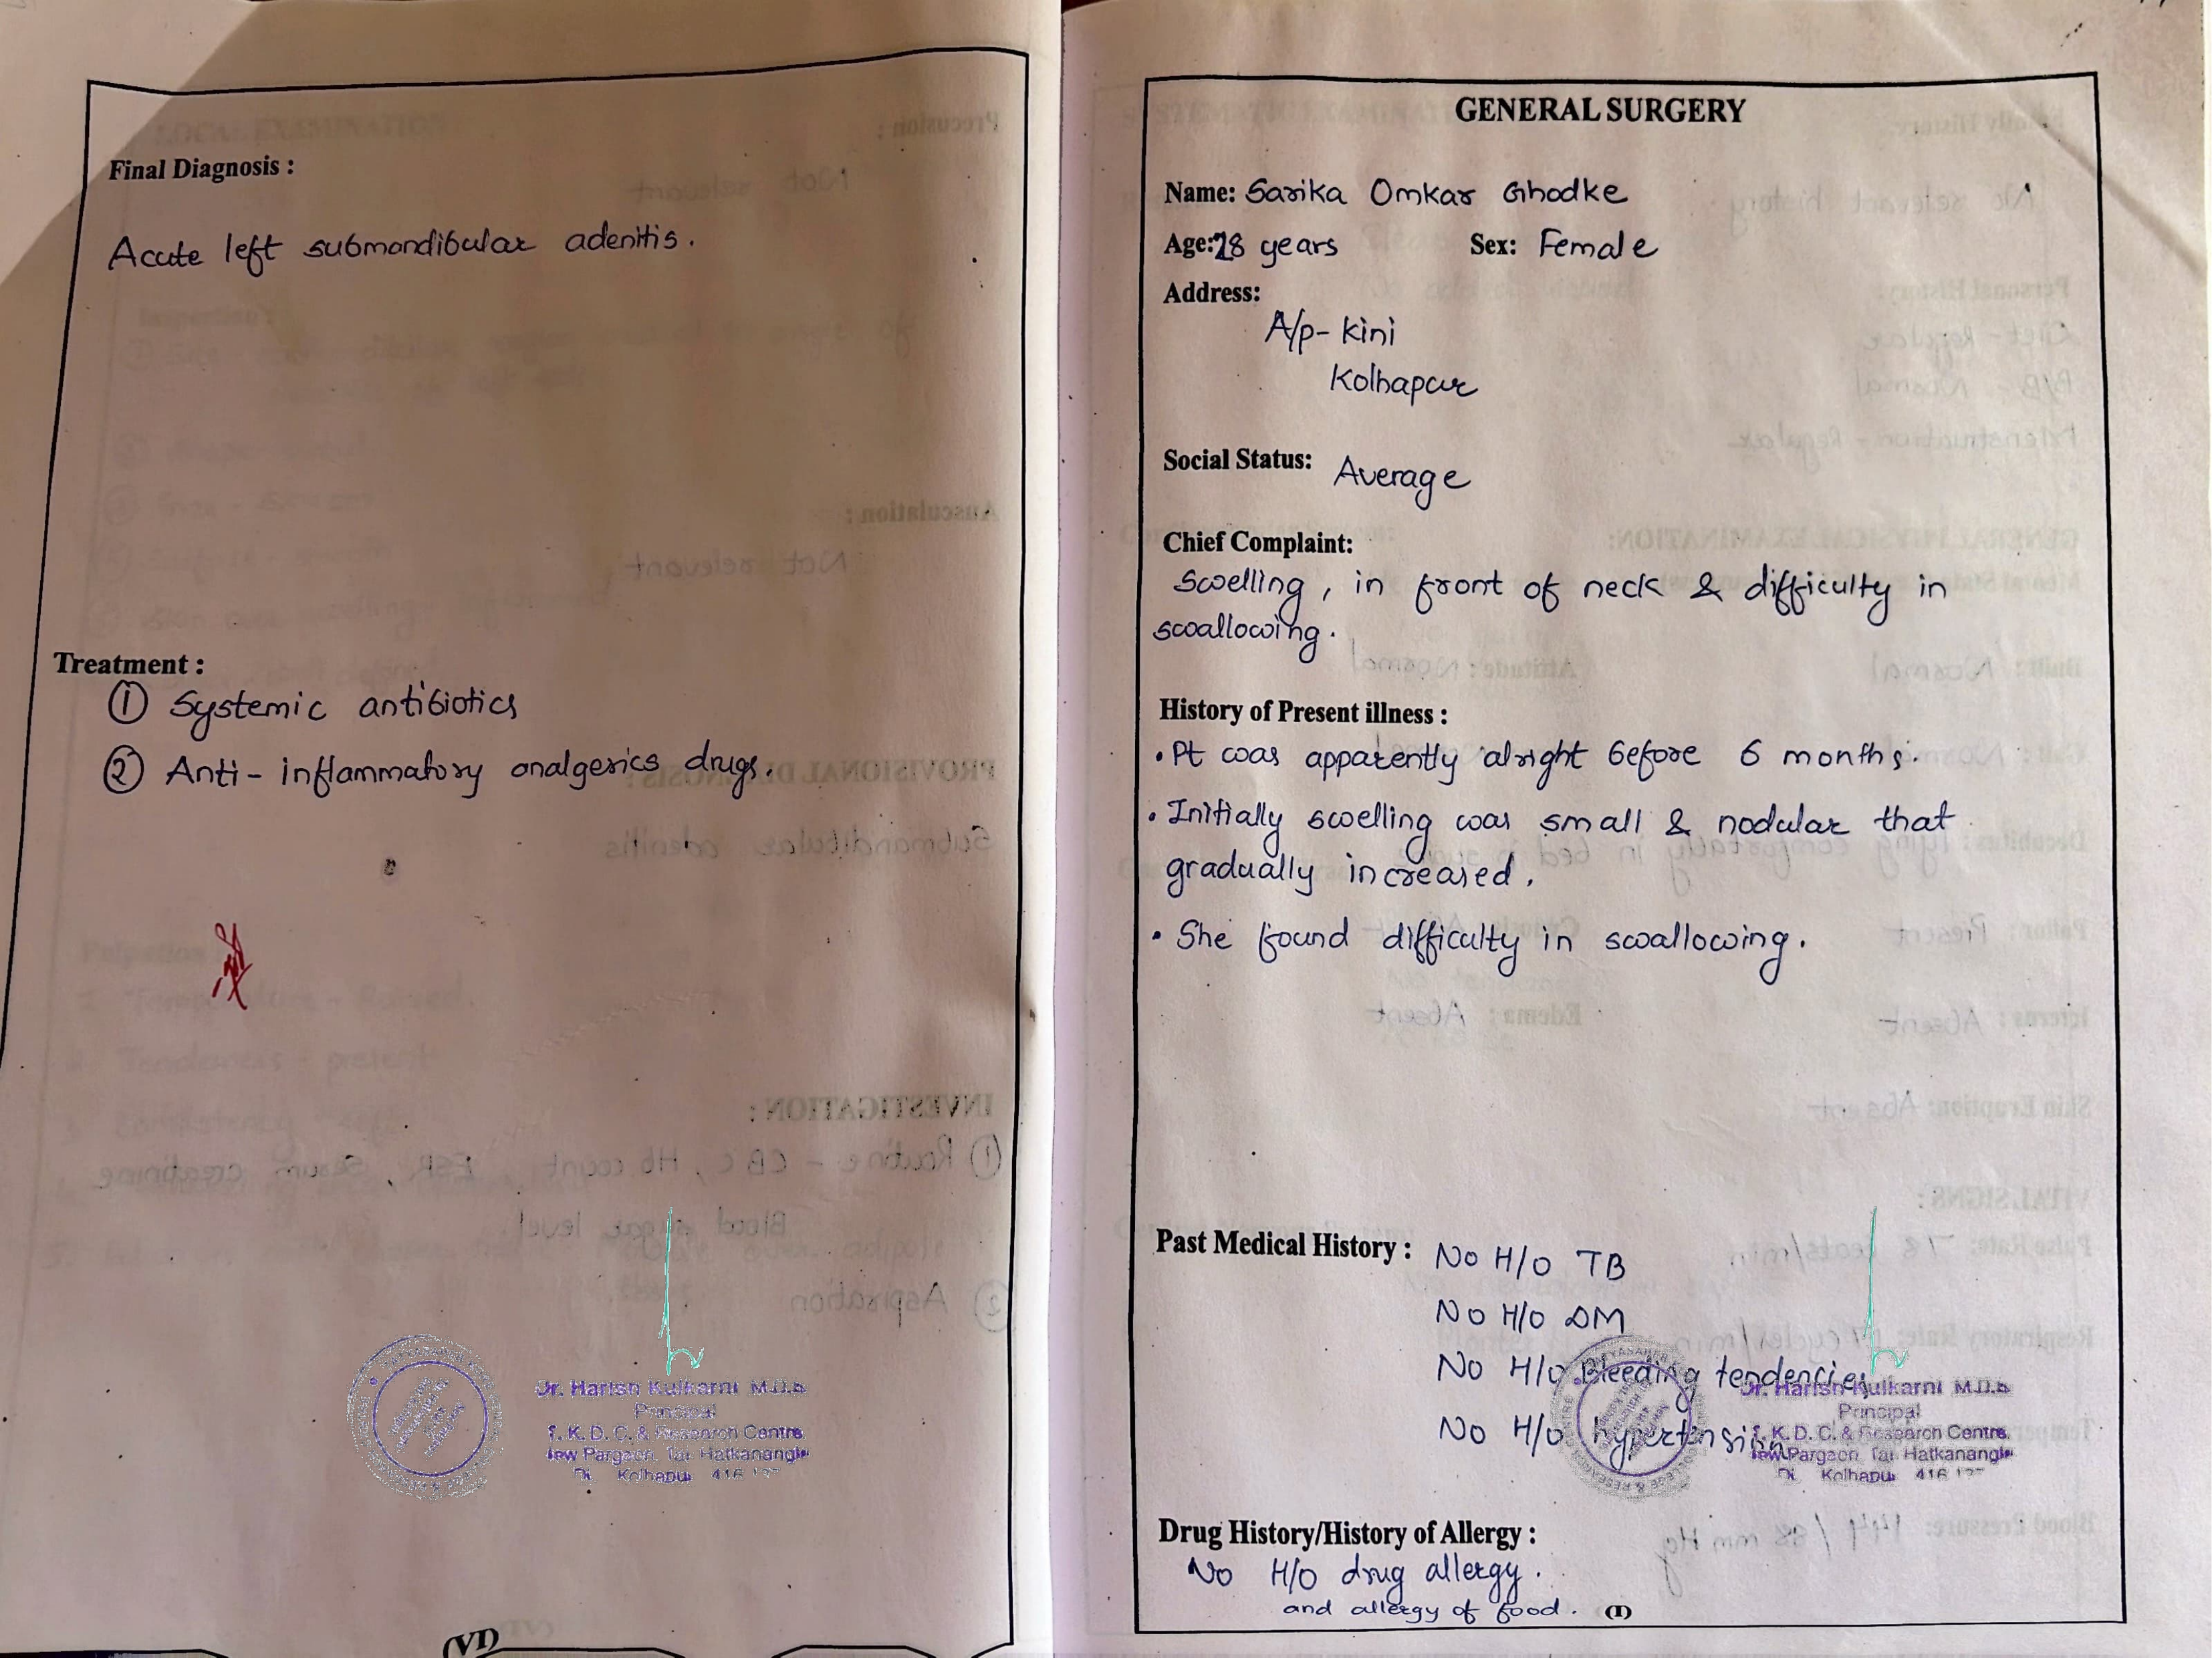 Final Diagnosis :
Acute left submandibular adenitis.
Treatment :
① Systemic antibiotics
② Anti-inflammatory analgesics drugs.
Dr. Harish Kulkarni M.D.S
Principal
K. D. C. & Research Centre
New Pargaon, Tal Hatkanangle
Kolhapur 416
(VI)
GENERAL SURGERY
Name: Sarika Omkar Ghodke
Age: 28 years Sex: Female
Address:
A/p- Kini
Kolhapur
Social Status: Average
Chief Complaint:
Swelling, in front of neck & difficulty in
swallowing.
History of Present illness :
• Pt was apparently alright before 6 months.
• Initially swelling was small & nodular that
gradually increased.
• She found difficulty in swallowing.
Past Medical History : No H/o TB
No H/o DM
No H/o Bleeding tendencies
No H/o hypertension
Dr. Harish Kulkarni M.D.S
Principal
K. D. C. & Research Centre
New Pargaon, Tal Hatkanangle
Kolhapur 416
Drug History/History of Allergy :
No H/o drug allergy.
and allergy of food. (I)